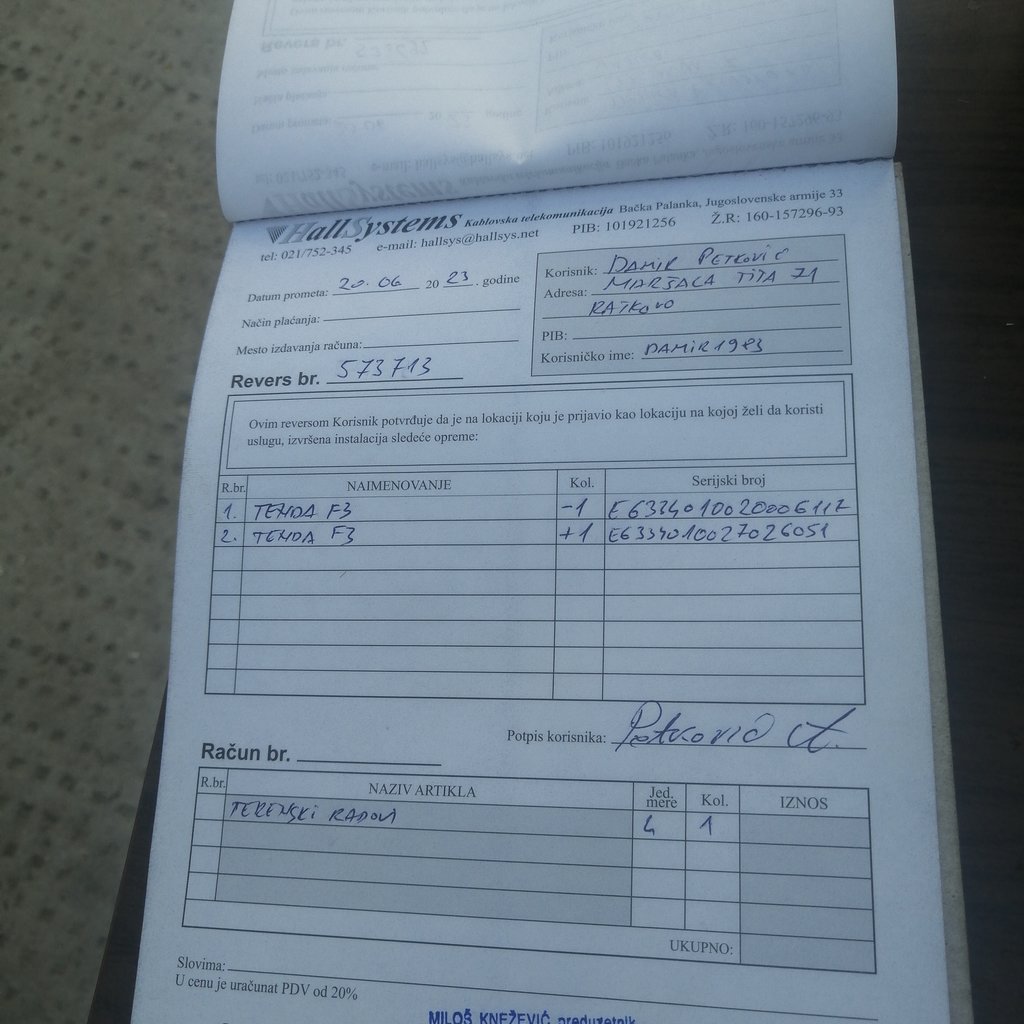 HallSystems Kablovska telekomunikacija Bačka Palanka, Jugoslovenske armije 33
tel: 021/752-345 e-mail: hallsys@hallsys.net PIB: 101921256 Ž.R: 160-157296-93
Datum prometa: 20.06 20 23. godine
Način plaćanja:
Mesto izdavanja računa:
Revers br. 573713
Korisnik: DAMIR PETKOVIĆ
Adresa: MARŠALA TITA 71
RATKOVO
PIB:
Korisničko ime: DAMIR1983
Ovim reversom Korisnik potvrđuje da je na lokaciji koju je prijavio kao lokaciju na kojoj želi da koristi
uslugu, izvršena instalacija sledeće opreme:
R.br. NAIMENOVANJE Kol. Serijski broj
1. TENDA F3 -1 E6334010020006117
2. TENDA F3 +1 E6334010027026051
Potpis korisnika: Petković A.
Račun br.
R.br. NAZIV ARTIKLA Jed. mere Kol. IZNOS
TERENSKI RADOVI h 1
UKUPNO:
Slovima:
U cenu je uračunat PDV od 20%
MILOŠ KNEŽEVIĆ preduzetnik